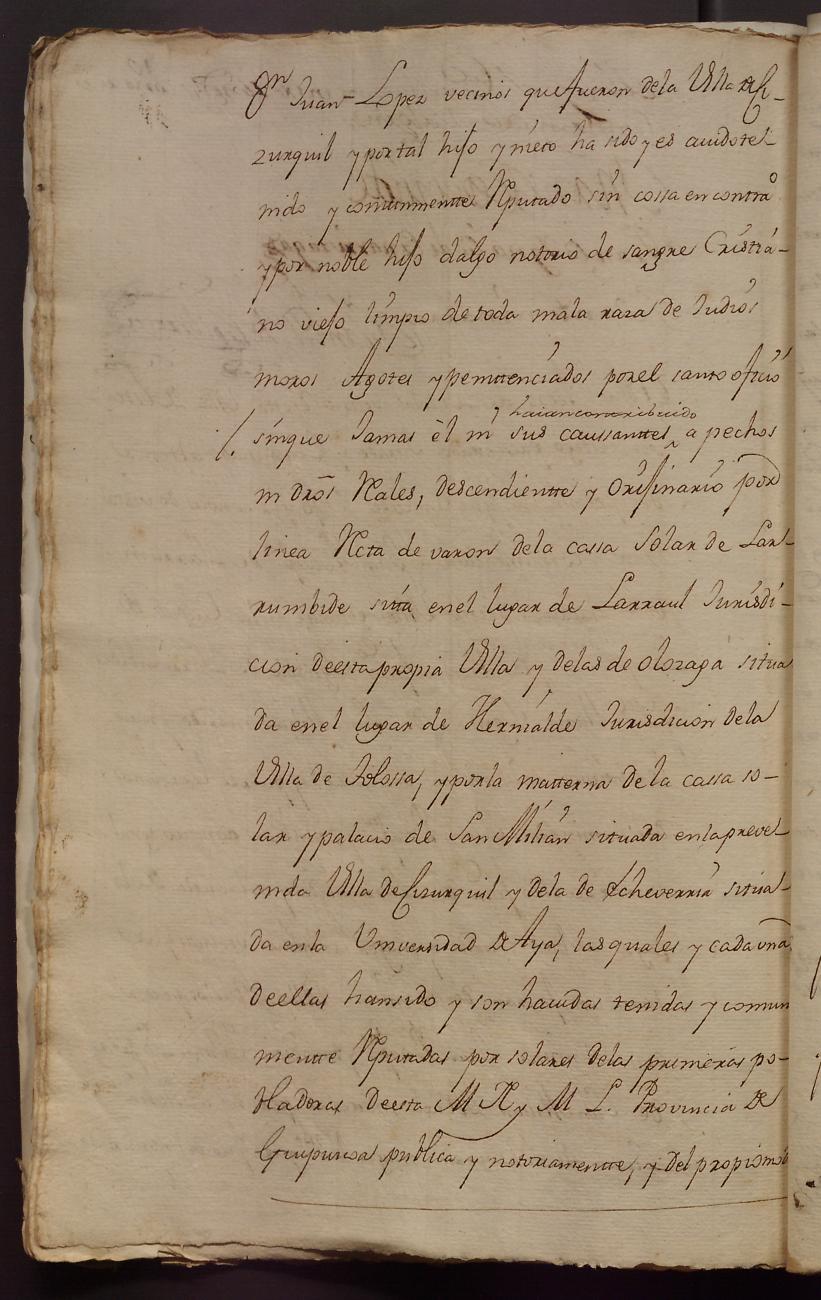 Dn Juan Lopez vecinos que fueron dela Villa de Ci-
zurquil y por tal hijo y nieto ha sido y es auido te-
nido y comunmentte Rputado sin cossa en contrao
y por noble hijo dalgo notorio de sangre Cristia-
no viejo limpio de toda mala raza de Judios
moros Agotes y penitenciados por el santo oficio
/. sinque Jamas èl ni sus caussanttes ^ a pechos
haian contribuido
ni dros Rales, descendientte y Orijinario por
linea Rcta de varon dela cassa Solar de Lar-
rumbide sita en el lugar de Larraul Jurisdi-
cion deesta propia Villa y delas de olozaga situa
da en el lugar de Hernialde Jurisdicion dela
Villa de Tolossa, y por la matterna de la cassa so-
lar y palacio de San Millàn situada en la preve-
nida Villa de Cizurquil y dela de Echeverria situa-
da en la Vniversidad de Aya, las quales y cada vna
deellas han sido y son hauidas tenidas y comun
mentte Rputadas por solares delas primeras po-
bladoras deesta M N y M L. Provincia de
Guipuzcoa publica y notoriamentte, y del propio mo